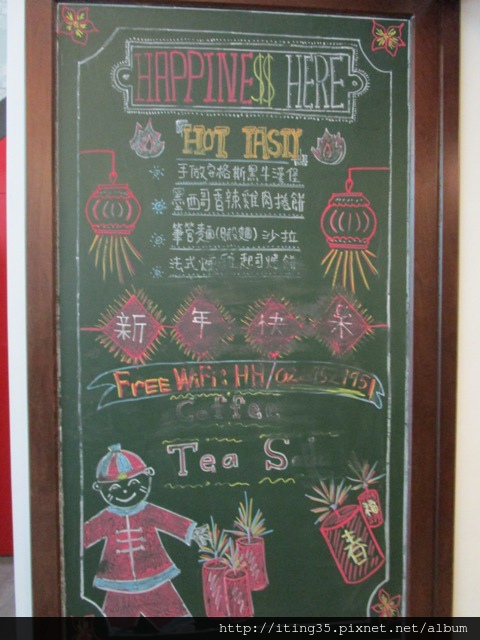 HAPPINE$$ HERE
HOT TASTY
手做安格斯黑牛漢堡
墨西哥香辣雞肉捲餅
筆管麵(蝦麵)沙拉
法式 起司燒餅
新年快樂
FREE WiFi: HH/
Coffee
Tea
福
春
http://iting35.pixnet.net/album